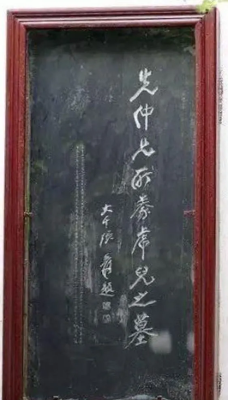 先仲兄所豢虎兒之墓
大千張爰題